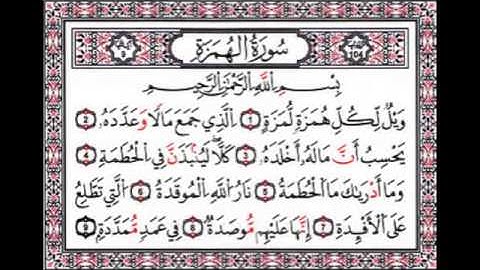 سُورَةُ الهُمَزَةِ
104
9
بِسْمِ اللَّهِ الرَّحْمَنِ الرَّحِيمِ
وَيْلٌ لِّكُلِّ هُمَزَةٍ لُّمَزَةٍ 1 الَّذِي جَمَعَ مَالًا وَعَدَّدَهُ 2
يَحْسَبُ أَنَّ مَالَهُ أَخْلَدَهُ 3 كَلَّا لَيُنبَذَنَّ فِي الْحُطَمَةِ 4
وَمَا أَدْرَىٰكَ مَا الْحُطَمَةُ 5 نَارُ اللَّهِ الْمُوقَدَةُ 6 الَّتِي تَطَّلِعُ
عَلَى الْأَفْئِدَةِ 7 إِنَّهَا عَلَيْهِم مُّؤْصَدَةٌ 8 فِي عَمَدٍ مُّمَدَّدَةٍ 9